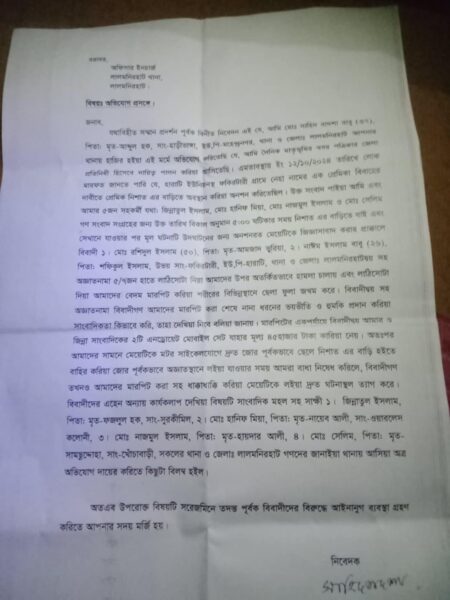 বরাবর,
অফিসার ইনচার্জ
লালমনিরহাট থানা,
লালমনিরহাট।
বিষয়ঃ অভিযোগ প্রসঙ্গে।
জনাব,
যথাবিহীত সম্মান প্রদর্শন পূর্বক বিনীত নিবেদন এই যে, আমি মোঃ সাহিন বাদশা বাবু (৩৭),
পিতা: মৃত-আব্দুল হক, সাং-হাড়ীভাঙ্গা, ইউ,পি-মহেন্দ্রনগর, থানা ও জেলাঃ লালমনিরহাট আপনার
থানায় হাজির হইয়া এই মর্মে অভিযোগ করিতেছি যে, আমি দৈনিক মাতৃভূমির খবর পত্রিকার জেলা
প্রতিনিধি হিসেবে দায়িত্ব পালন করিয়া আসিতেছি। এমতাবস্থায় ইং ১২/১০/২০২৪ তারিখে লোক
মারফত জানতে পারি যে, হারাটি ইউনিয়নস্থ ফকিরটারী গ্রামে নেহা নামের এক প্রেমিকা বিবাহের
দাবীতে প্রেমিক নিশাত এর বাড়িতে অবস্থান করিয়া অনশন করিতেছিল। উক্ত সংবাদ পাইয়া আমি এবং
আমার ৫জন সহকর্মী যথা: জিন্নাতুল ইসলাম, মোঃ হানিফ মিয়া, মোঃ নাজমুল ইসলাম ও মোঃ সেলিম
গণ সংবাদ সংগ্রহের জন্য উক্ত তারিখ বিকাল অনুমান ৫:০০ ঘটিকার সময় নিশাত এর বাড়িতে যাই এবং
সেখানে যাওয়ার পর মূল ঘটনাটি উদঘাটনের জন্য অনশনরত মেয়েটিকে জিজ্ঞাসাবাদ করার প্রাক্কালে
বিবাদী ১। মোঃ রশিদুল ইসলাম (৫০), পিতা: মৃত-আমজাদ ভুরিয়া, ২। নাঈম ইসলাম বাবু (২৬),
পিতা: শফিকুল ইসলাম, উভয় সাং-ফকিরটারী, ইউ,পি-হারাটি, থানা ও জেলাঃ লালমনিরহাটদ্বয় সহ
অজ্ঞাতনামা ৫/৭জন হাতে লাঠিসোটা নিয়া আমাদের উপর অতর্কিতভাবে হামলা চালায় এবং লাঠিসোটা
দিয়া আমাদের বেদম মারপিট করিয়া শরীরের বিভিন্নস্থানে ছেলা ফুলা জখম করে। বিবাদীদ্বয় সহ
অজ্ঞাতনামা বিবাদীগণ আমাদের মারপিট করা শেষে নানা ধরনের ভয়ভীতি ও হুমকি প্রদান করিয়া
সাংবাদিকতা কিভাবে করি, তাহা দেখিয়া নিবে বলিয়া জানায়। মারপিটের একপর্যায়ে বিবাদীদ্বয় আমার ও
জিন্না সাংবাদিকের ২টি এনড্রোয়েট মোবাইল সেট যাহার মূল্য ৪৫হাজার টাকা কারিয়া নেয়। অতঃপর
আমাদের সামনে মেয়েটিকে মটর সাইকেলযোগে দ্রুত জোর পূর্বকভাবে ছেলে নিশাত এর বাড়ি হইতে
বাহির করিয়া জোর পূর্বকভাবে অজ্ঞাতস্থানে লইয়া যাওয়ার সময় আমরা বাধা নিষেধ করিলে, বিবাদীগণ
তখনও আমাদের মারপিট করা সহ ধাক্কাধাক্কি করিয়া মেয়েটিকে লইয়া দ্রুত ঘটনাস্থল ত্যাগ করে।
বিবাদীদের এহেন অন্যায় কার্যকলাপ দেখিয়া বিষয়টি সাংবাদিক মহল সহ সাক্ষী ১। জিন্নাতুল ইসলাম,
পিতা: মৃত-ফজলুল হক, সাং-সুরকীমিল, ২। মোঃ হানিফ মিয়া, পিতা: মৃত-নায়েব আলী, সাং-ওয়ারলেস
কলোনী, ৩। মোঃ নাজমুল ইসলাম, পিতা: মৃত-হায়দার আলী, ৪। মোঃ সেলিম, পিতা: মৃত-
সামছুদ্দোহা, সাং-খোঁচাবাড়ী, সকলের থানা ও জেলাঃ লালমনিরহাট গণদের জানাইয়া থানায় আসিয়া অত্র
অভিযোগ দায়ের করিতে কিছুটা বিলম্ব হইল।
অতএব উপরোক্ত বিষয়টি সরেজমিনে তদন্ত পূর্বক বিবাদীদের বিরুদ্ধে আইনানুগ ব্যবস্থা গ্রহণ
করিতে আপনার সদয় মর্জি হয়।
নিবেদক